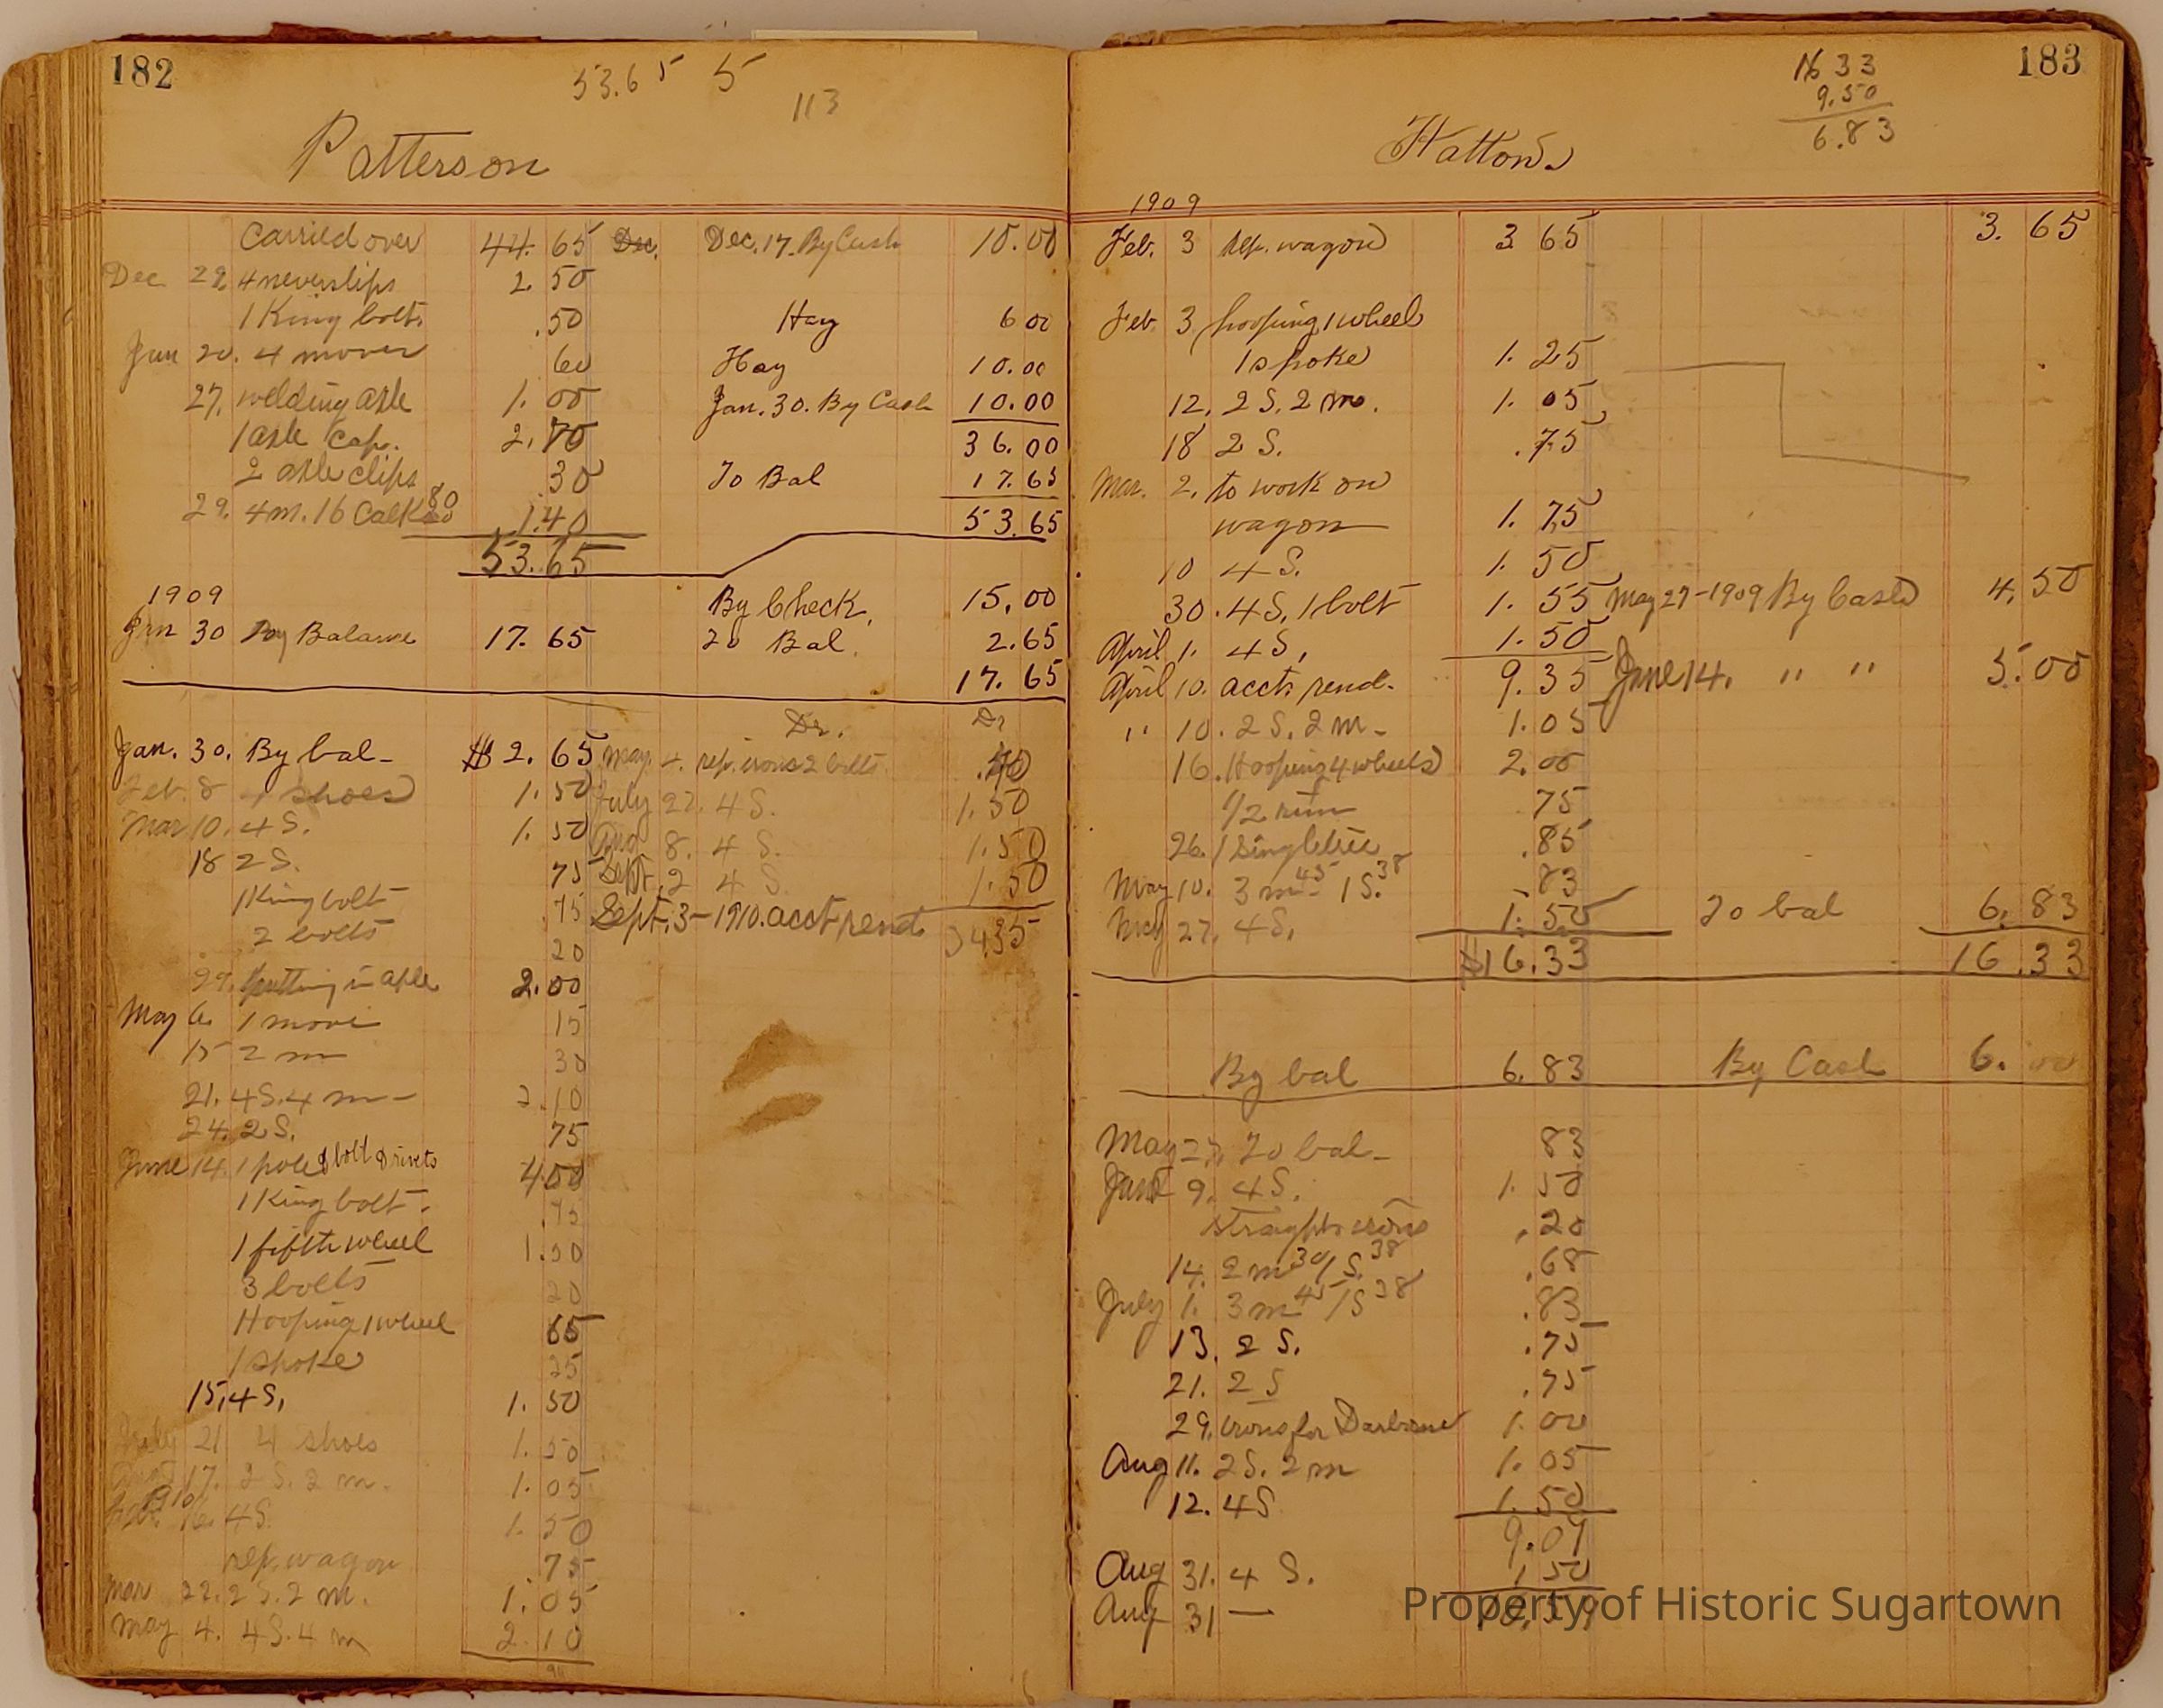 182
53.65 5
113
Patterson
Carried over 44.65
Dec 29, 4 neverslips 2.50
1 King bolt .50
Jan 20. 4 moves 60
27, welding axle 1.00
1 axle cap. 2.70
2 axle clips .30
29. 4 m. 16 Calk 80 1.40
53.65
Dec. Dec. 17. By Cash 10.00
Hay 6 00
Hay 10.00
Jan. 30. By Cash 10.00
36.00
To Bal 17.65
53.65
1909
Jan 30 By Balance 17.65
By Check, 15.00
To Bal. 2.65
17.65
Jan. 30. By bal- $2.65
Feb. 8 4 shoes 1.50
Mar 10. 4 S. 1.50
18 2 S. 75
1 King bolt .75
2 bolts 20
29. putting in axle 2.00
May 6. 1 move 15
15 2 m 30
21. 4 S. 4 m- 2.10
24. 2 S. 75
June 14. 1 pole & bolt & rivets 4.00
1 King bolt. .75
1 fifth wheel 1.50
3 bolts 20
Hooping 1 wheel 65
1 spoke 25
15, 4 S, 1.50
July 21 4 shoes 1.50
17. 2 S. 2 m. 1.05
1910
16. 4 S. 1.50
rep. wagon .75
Mar 22. 2 S. 2 m. 1.05
May 4. 4 S. 4 m 2.10
Dr. Dr
May. 4. rep. irons 2 bolts
July 22. 4 S. 1.50
Aug 8. 4 S. 1.50
Sept. 2 4 S. 1.50
Sept. 3-1910. acct rend. 34.35
183
16 33
9.50
6.83
Hatton
1909
Feb. 3 rep. wagon 3 65 3.65
Feb. 3 hooping 1 wheel
1 spoke 1.25
12. 2 S. 2 m. 1.05
18 2 S. .75
Mar. 2. to work on
wagon 1.75
10 4 S. 1.50
30. 4 S, 1 bolt 1.55 May 27-1909 By Cash 4.50
April 1. 4 S, 1.50
April 10. acct. rend. 9.35 June 14. " " 5.00
" 10. 2 S. 2 m- 1.05
16. Hooping 4 wheels 2.00
1/2 rim 75
26. 1 Singletree .85
May 10. 3 m 45 - 1 S. 38 .83
May 27. 4 S. 1.50 To bal 6.83
$16.33 16.33
By bal 6.83 By Cash 6.00
May 27. To bal- 83
9. 4 S. 1.50
straight irons .20
14. 2 m 30 1 S. 38 .68
July 1. 3 m 45 1 S 38 .83
13. 2 S. .75
21. 2 S .75
29. irons for 1.00
Aug 11. 2 S. 2 m 1.05
12. 4 S 1.50
9.09
Aug 31. 4 S. 1.50
Aug 31 — 10.59
Property of Historic Sugartown